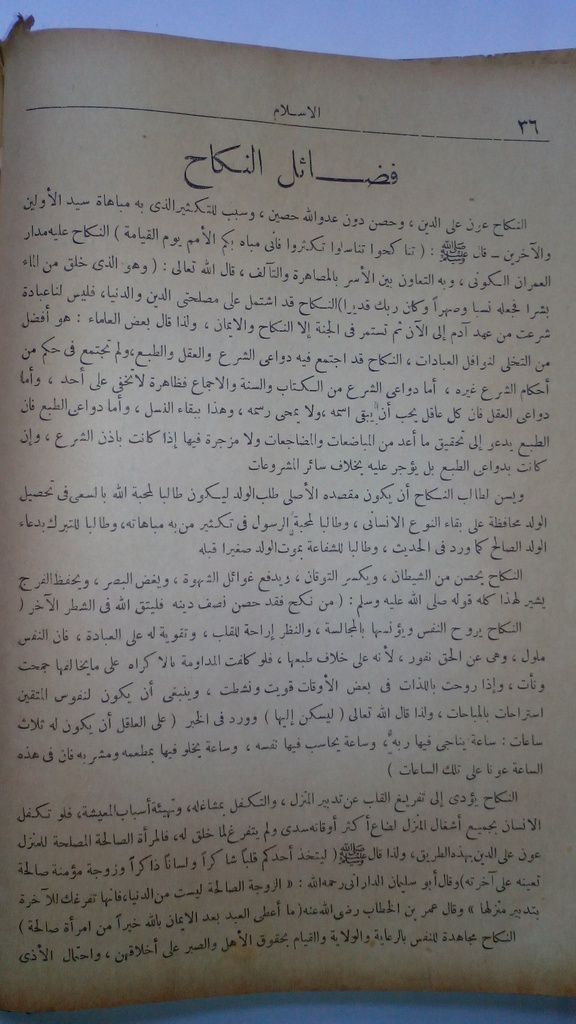 الاسلام
٣٦
فضائل النكاح
النكاح عون على الدين ، وحصن دون عدو الله حصين ، وسبب للتكثير الذى به مباهاة سيد الأولين
والآخرين ـ قال ﷺ : ( تناكحوا تناسلوا تكثروا فانى مباه بكم الأمم يوم القيامة ) النكاح عليه مدار
العمران الكونى ، وبه التعاون بين الأسر بالمصاهرة والتآلف ، قال الله تعالى : ( وهو الذى خلق من الماء
بشرا فجعله نسبا وصهراً وكان ربك قديرا) النكاح قد اشتمل على مصلحتى الدين والدنيا، فليس لنا عبادة
شرعت من عهد آدم إلى الآن ثم تستمر فى الجنة إلا النكاح والايمان ، ولذا قال بعض العلماء : هو أفضل
من التخلى لنوافل العبادات ، النكاح قد اجتمع فيه دواعى الشرع والعقل والطبع، ولم تجتمع فى حكم من
أحكام الشرع غيره ، أما دواعى الشرع من الكتاب والسنة والاجماع فظاهرة لا تخفى على أحد ، وأما
دواعى العقل فان كل عاقل يحب أن يبقى اسمه ،ولا يمحى رسمه ، وهذا ببقاء النسل ، وأما دواعى الطبع فان
الطبع يدعو إلى تحقيق ما أعد من المباضعات والمضاجعات ولا مزجرة فيها إذا كانت باذن الشرع ، وإن
كانت بدواعى الطبع بل يؤجر عليه بخلاف سائر المشروعات
ويسن لطالب النكاح أن يكون مقصده الأصلى طلب الولد ليكون طالبا لمحبة الله بالسعى فى تحصيل
الولد محافظة على بقاء النوع الانسانى ، وطالبا لمحبة الرسول فى تكثير من به مباهاته، وطالبا للتبرك بدعاء
الولد الصالح كما ورد فى الحديث ، وطالبا للشفاعة بموت الولد صغيرا قبله
النكاح يحصن من الشيطان ، ويكسر التوقان ، ويدفع غوائل الشهوة ، ويغض البصر ، ويحفظ الفرج
يشير لهذا كله قوله صلى الله عليه وسلم : ( من نكح فقد حصن نصف دينه فليتق الله فى الشطر الآخر (
النكاح يروح النفس ويؤنسها بالمجالسة ، والنظر إراحة للقلب ، وتقوية له على العبادة ، فان النفس
ملول ، وهى عن الحق نفور ، لأنه على خلاف طبعها ، فلو كلفت المداومة بالاكراه على ما يخالفها جمحت
وتأت ، وإذا روحت باللذات فى بعض الأوقات قويت ونشطت ، وينبغى أن يكون لنفوس المتقين
استراحات بالمباحات ، ولذا قال الله تعالى ( ليسكن إليها ) وورد فى الخبر ( على العاقل أن يكون له ثلاث
ساعات : ساعة يناجى فيها ربه ، وساعة يحاسب فيها نفسه ، وساعة يخلو فيها بمطعمه ومشربه فان فى هذه
الساعة عونا على تلك الساعات )
النكاح يؤدى إلى تفريغ القلب عن تدبير المنزل ، والتكفل بمشاغله، وتهيئة أسباب المعيشة، فلو تكفل
الانسان بجميع أشغال المنزل لضاع أكثر أوقاته سدى ولم يتفرغ لما خلق له، فالمرأة الصالحة المصلحة للمنزل
عون على الدين بهذه الطريق، ولذا قال ﷺ ( ليتخذ أحدكم قلباً شاكراً ولساناً ذاكراً وزوجة مؤمنة صالحة
تعينه على آخرته) وقال أبو سليمان الدارانى رحمه الله : « الزوجة الصالحة ليست من الدنيا، فانها تفرغك للآخرة
بتدبير منزلها » وقال عمر بن الخطاب رضى الله عنه ( ما أعطى العبد بعد الايمان بالله خيراً من امرأة صالحة )
النكاح مجاهدة للنفس بالرعاية والولاية والقيام بحقوق الأهل والصبر على أخلاقهن ، واحتمال الأذى